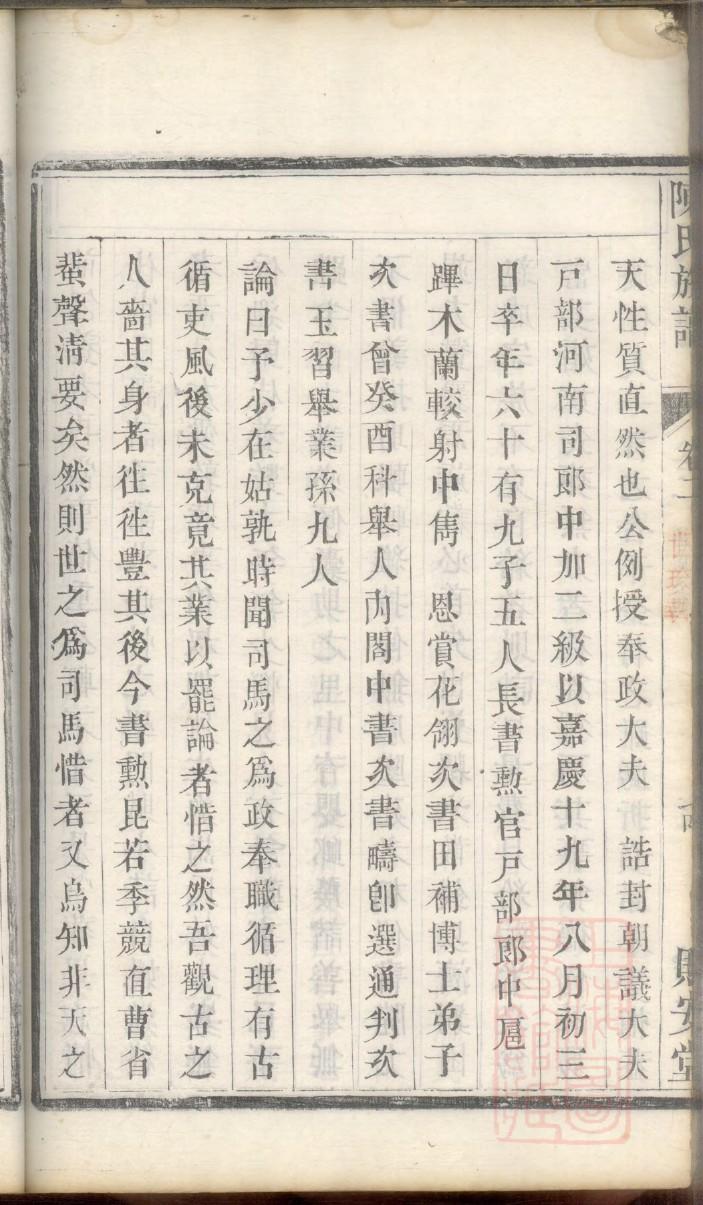 陳氏族譜
卷二
貽安堂
天性質直然也公例授奉政大夫　誥封朝議大夫
戸部河南司郎中加三級以嘉慶十九年八月初三
日卒年六十有九子五人長書勲官戸部郎中扈
蹕木蘭較射中雋　恩賞花翎次書田補博士弟子
次書曾癸酉科舉人内閣中書次書疇卽選通判次
書玉習舉業孫九人
論曰予少在姑孰時聞司馬之爲政奉職循理有古
循吏風後未克竟其業以罷論者惜之然吾觀古之
人嗇其身者徃徃豐其後今書勲昆若季競直曹省
蜚聲淸要矣然則世之爲司馬惜者又烏知非天之